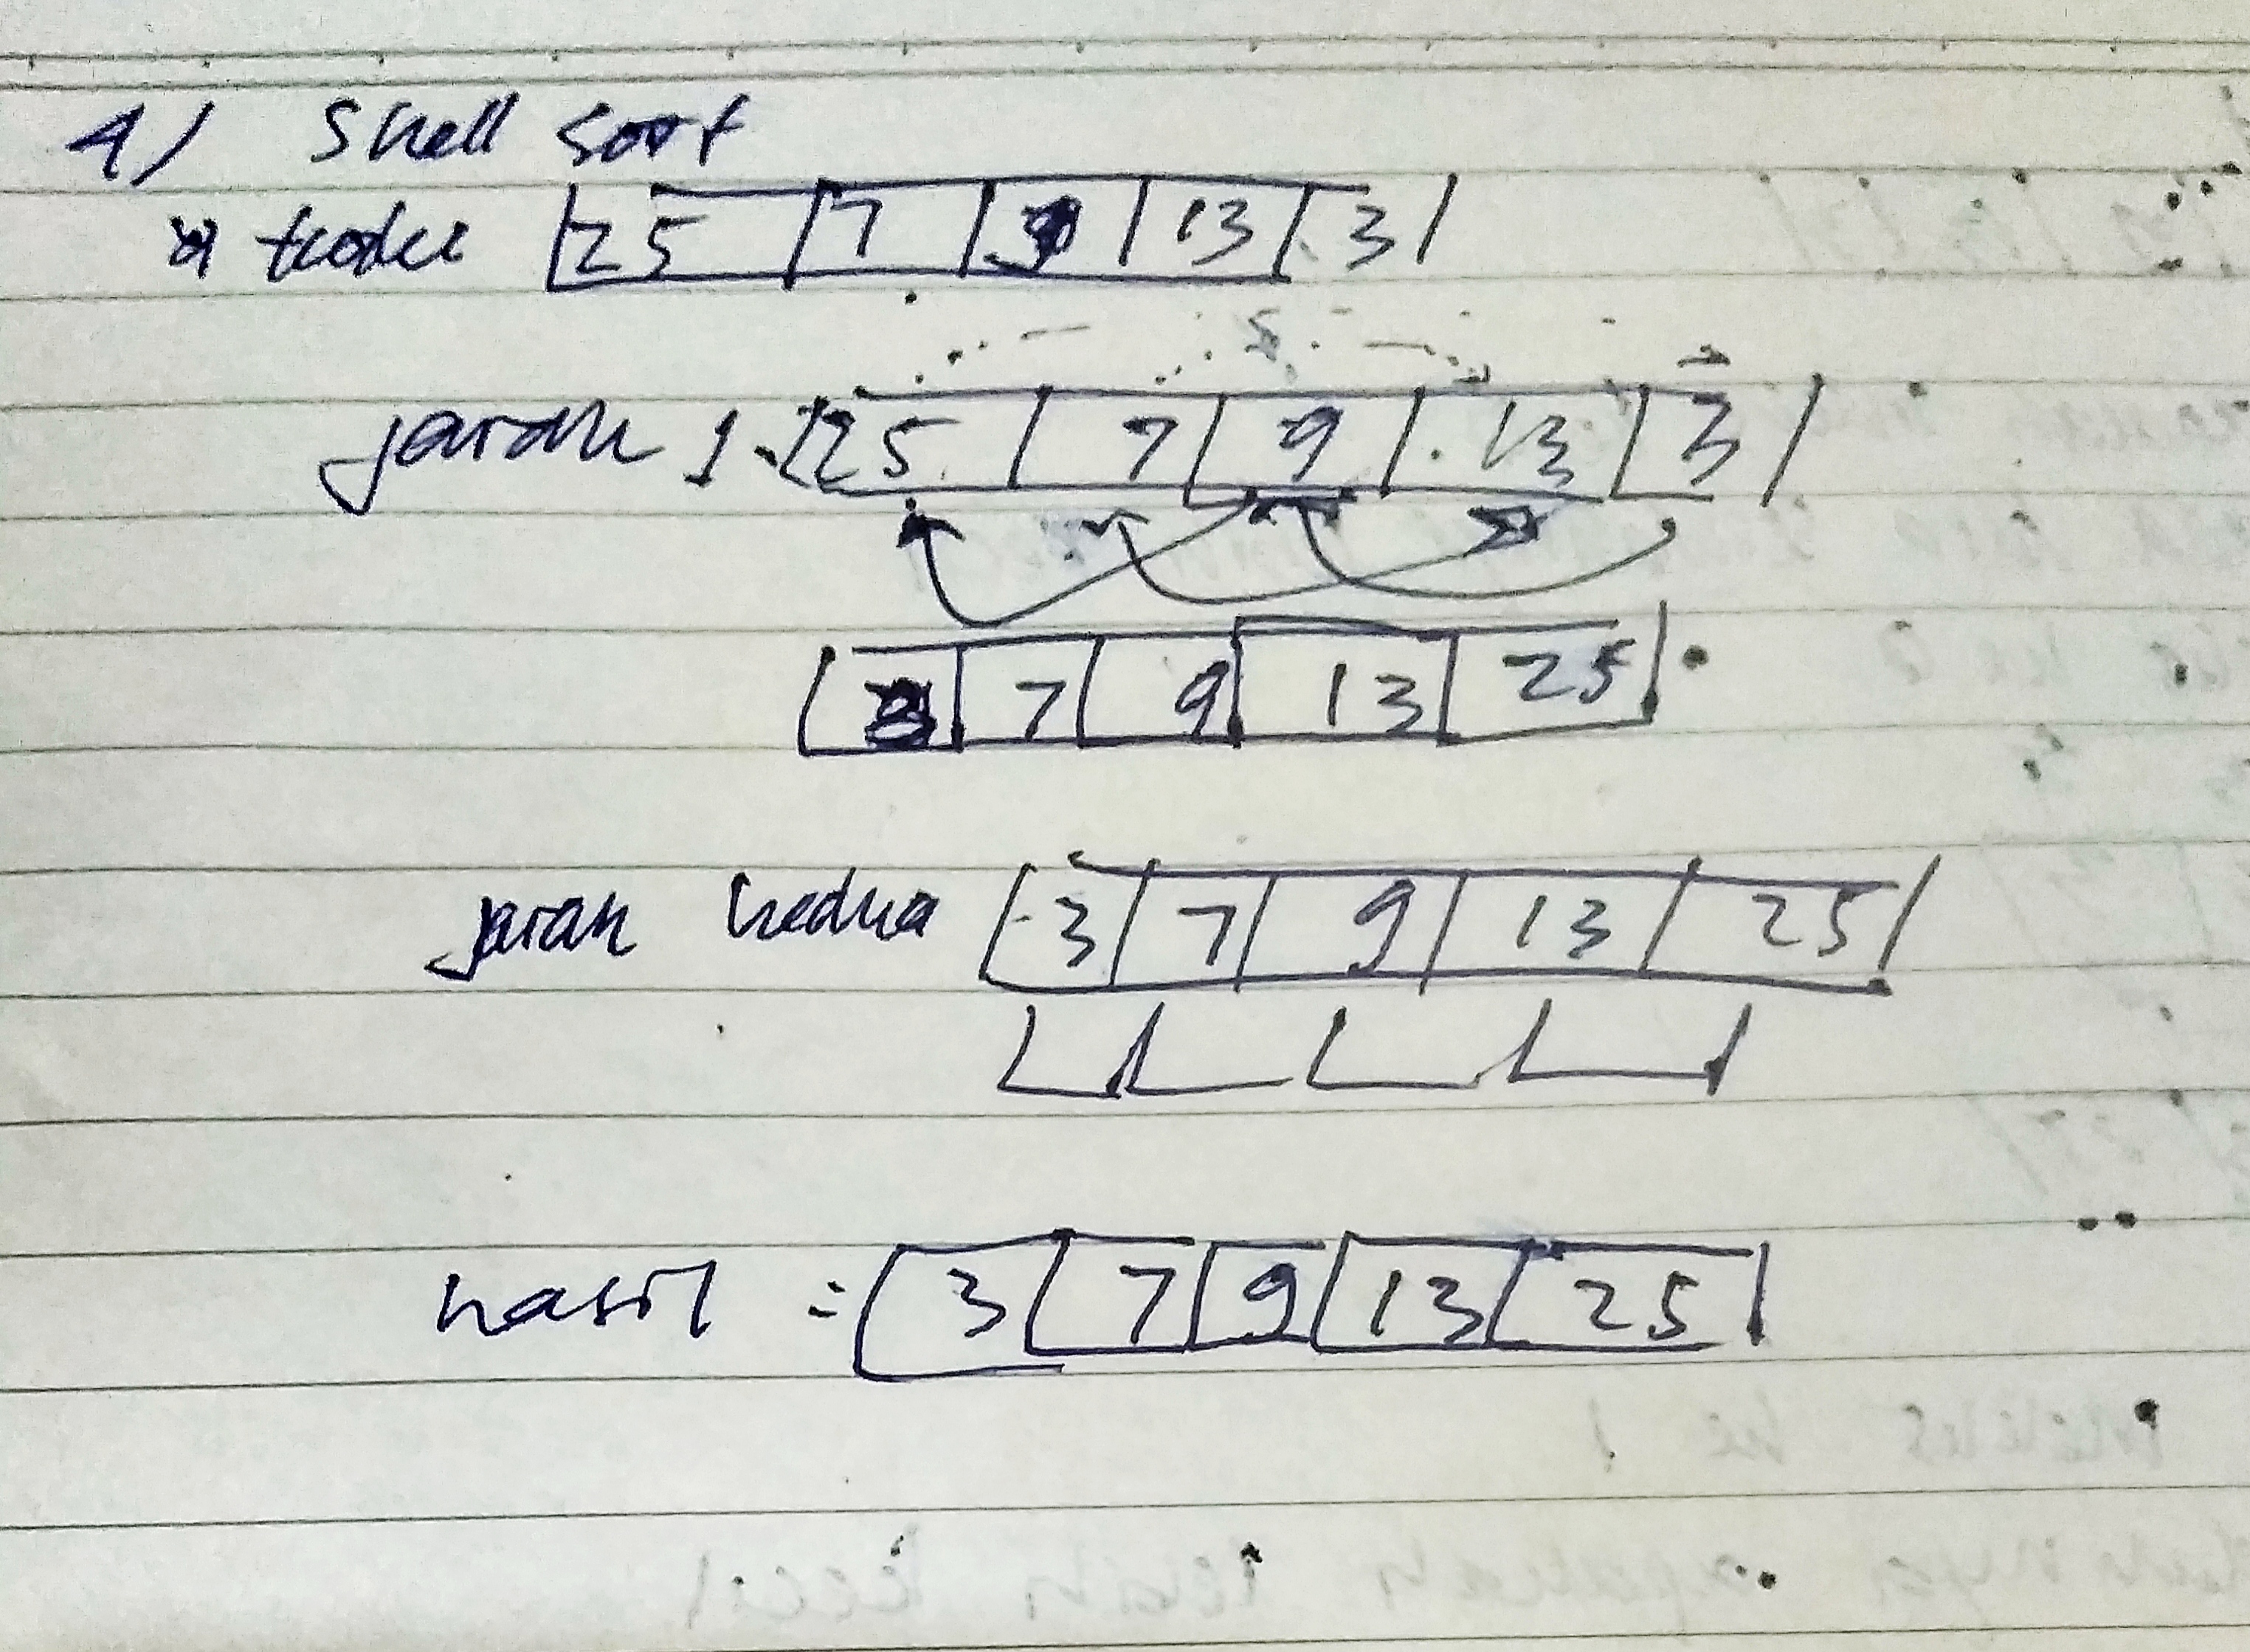 4) Shell sort
25 7 9 13 3
jarak 1. 25 7 9 13 3
3 7 9 13 25
jarak kedua 3 7 9 13 25
hasil = 3 7 9 13 25